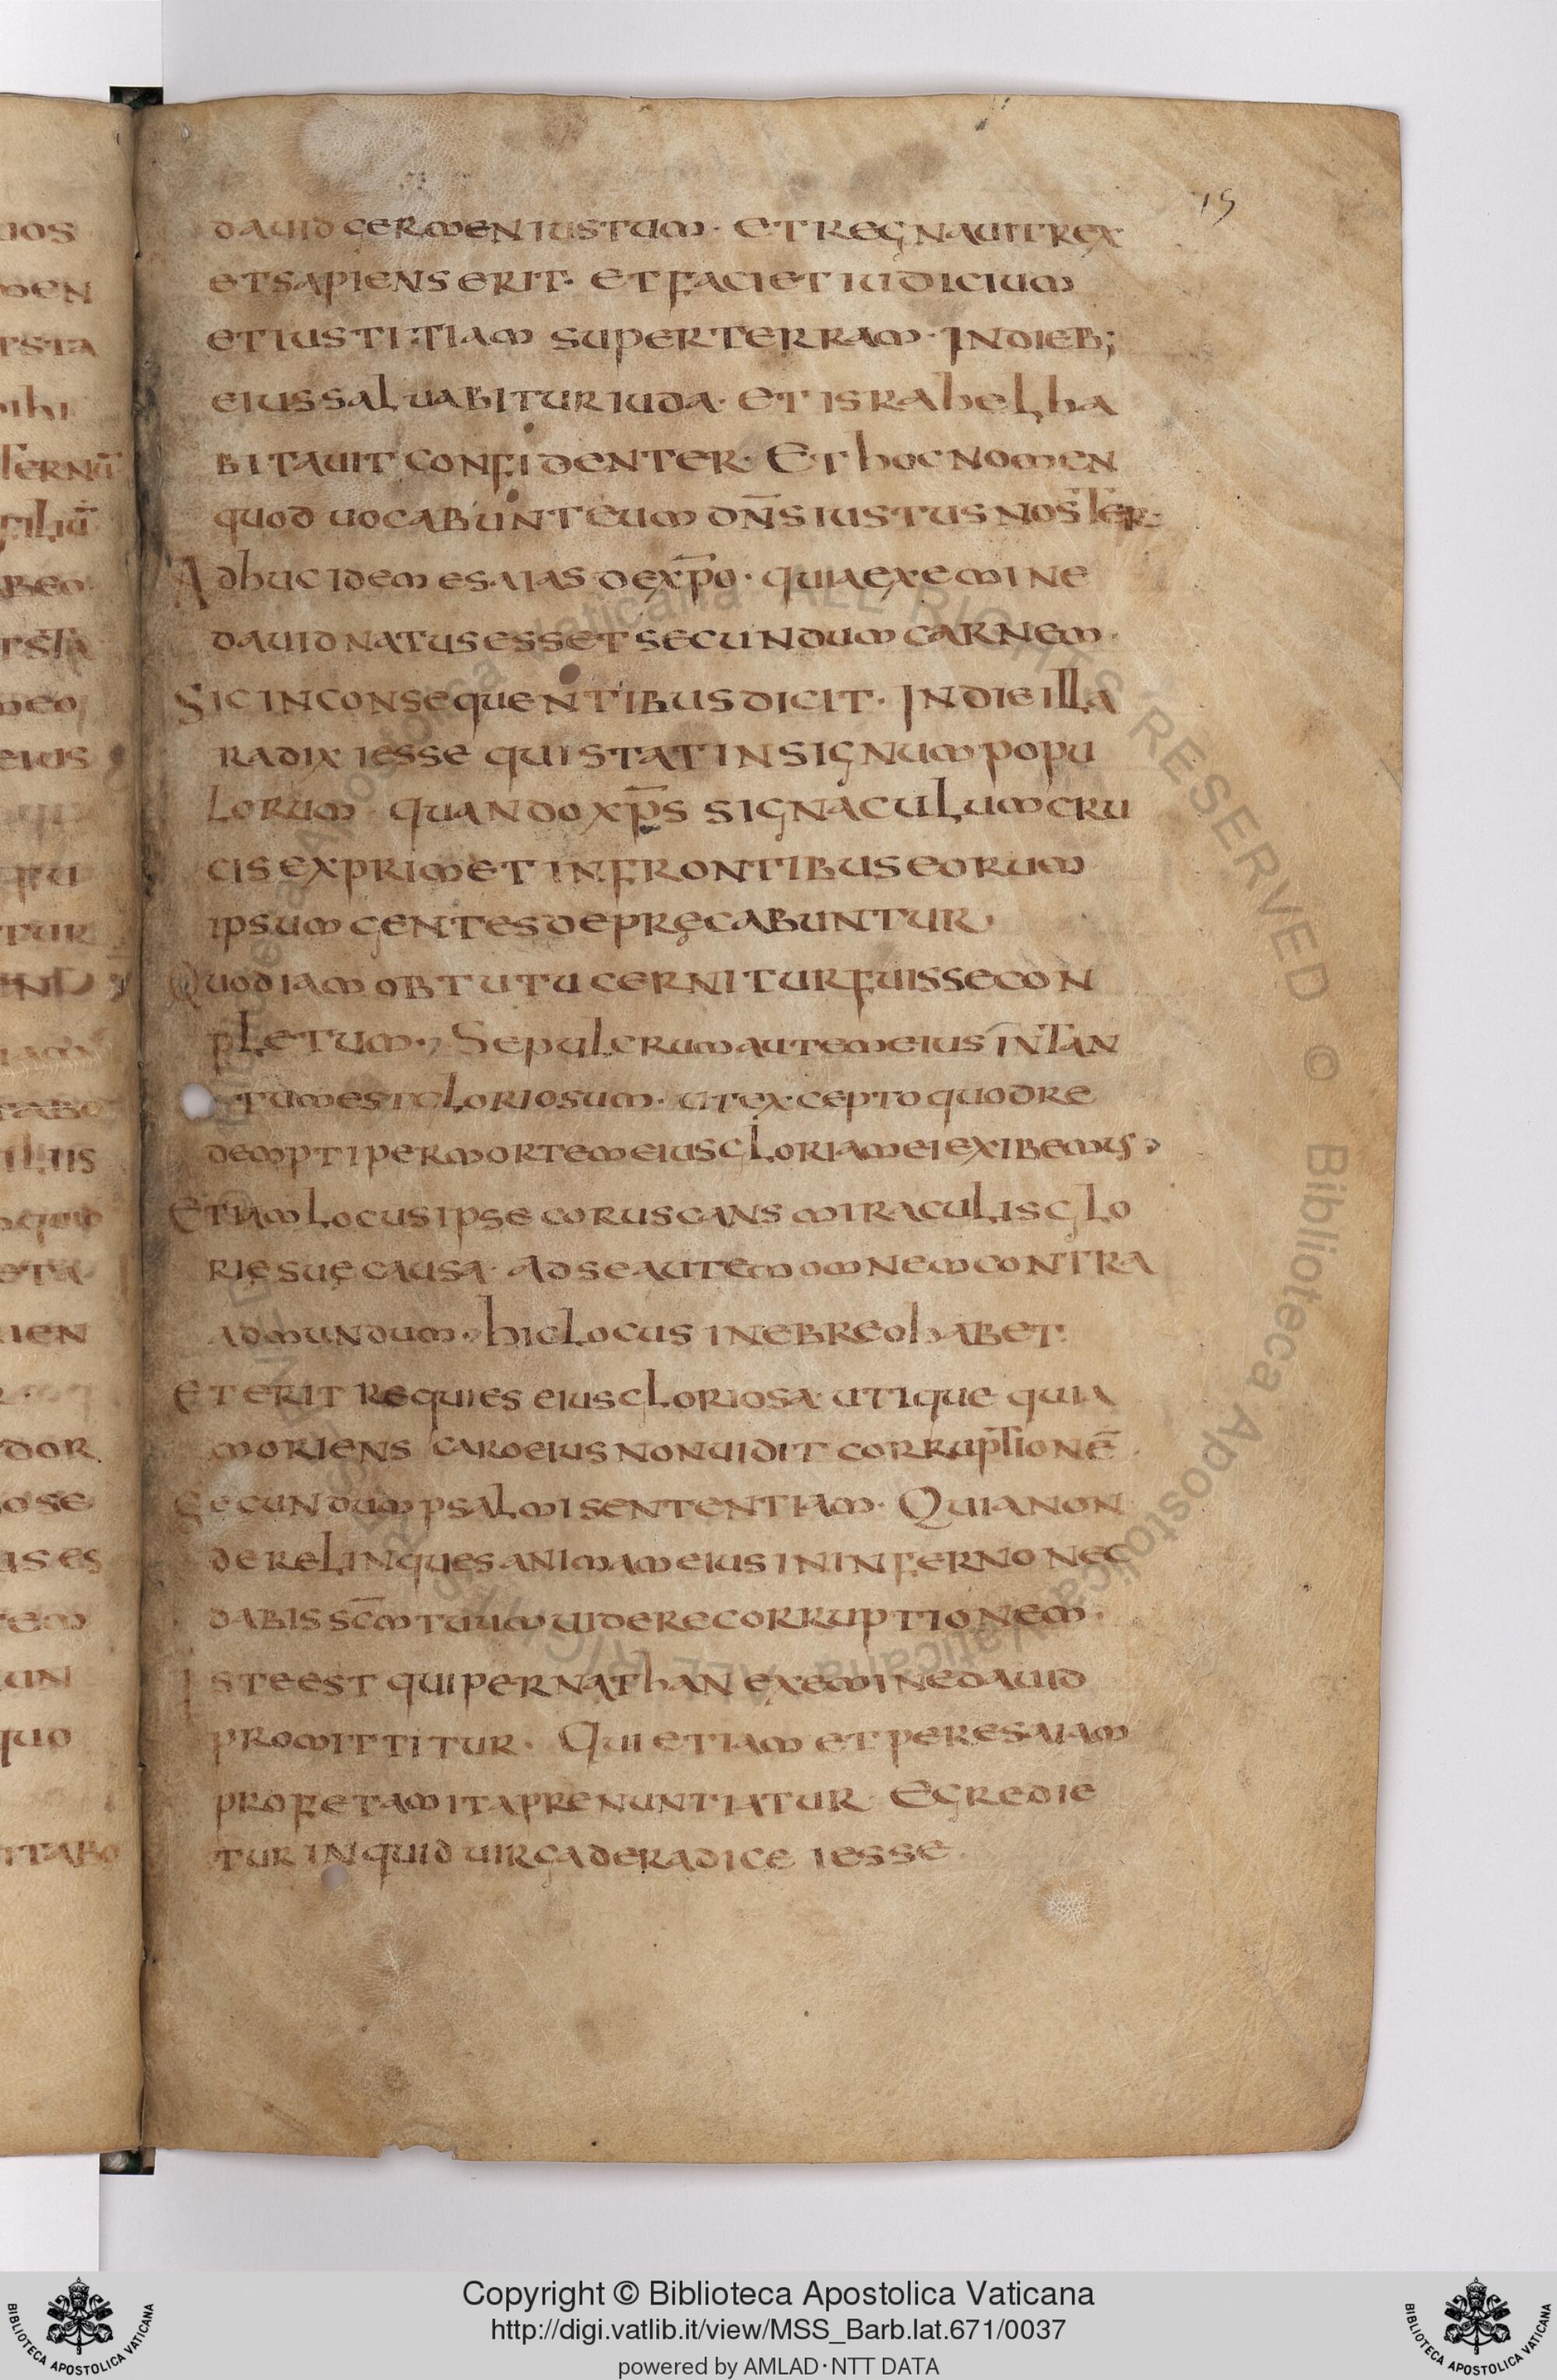 15
dauid germen iustum · Et regnauit rex
et sapiens erit · et faciet iudicium
et iustitiam super terram · In dieb;
eius saluabitur iuda · et israhel ha
bitauit confidenter · Et hoc nomen
quod uocabunt eum dn̄s iustus noster ·
Adhuc idem esaias de xp̄o · quia ex emine
dauid natus esset secundum carnem ·
Sic in consequentibus dicit · In die illa
radix iesse qui stat in signum popu
lorum · quando xp̄s signaculum cru
cis exprimet in frontibus eorum
ipsum gentes depręcabuntur ·
Quod iam obtutu cernitur fuisse con
pletum ·, Sepulcrum autem eius in tan
tum est gloriosum · ut excepto quod re
dempti per mortem eius gloriam ei exibemus ,
Etiam locus ipse coruscans miraculis glo
rię suę causa · ad se autem omnem contra
ad mundum · hic locus in ebreo habet ·
Et erit requies eius gloriosa · utique quia
moriens caro eius non uidit corruptionē
Secundum psalmi sententiam · Quia non
derelinques animam eius in inferno nec
dabis sc̄m tuum uidere corruptionem ·
Iste est qui per nathan ex emine dauid
promittitur · Qui etiam et per esaiam
profetam ita prenuntiatur · Egredie
tur inquid uirga de radice iesse ·
uos
men
ihi
filiū
eius
qui
tur
dor
ose
as es
tem
un
quo
itabo
Copyright © Biblioteca Apostolica Vaticana
http://digi.vatlib.it/view/MSS_Barb.lat.671/0037
powered by AMLAD·NTT DATA
BIBLIOTECA APOSTOLICA VATICANA
BIBLIOTECA APOSTOLICA VATICANA